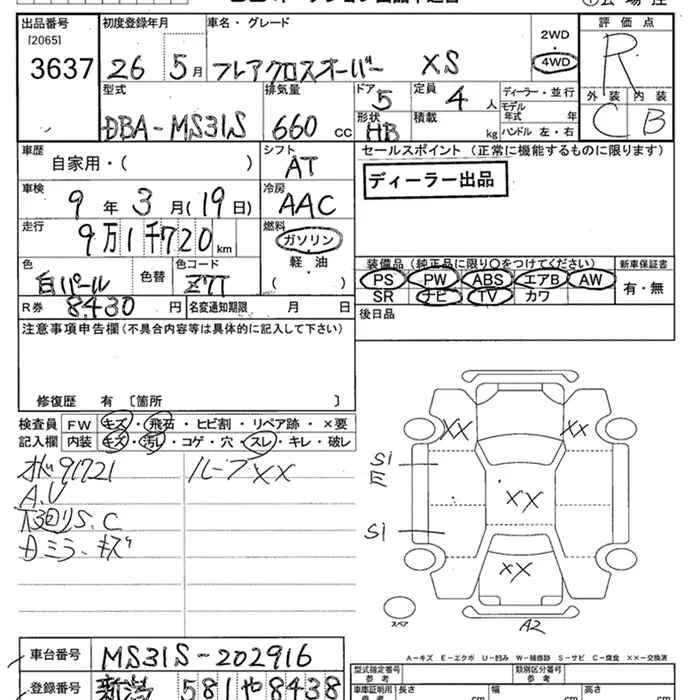 出品番号 初度登録年月 車名・グレード 評価点
[2065] 3637 26 5月 フレアクロスオーバー XS 2WD 4WD R
型式 排気量 ドア 5 定員 4人 ディーラー・並行 外装 内装
DBA-MS31S 660 cc 形状 HB 積載 kg モデル年式 年 ハンドル 左・右 C B
車歴 自家用・( ) シフト AT セールスポイント(正常に機能するものに限ります)
車検 9年3月(19日) 冷房 AAC ディーラー出品
走行 9万1千720km 燃料 ガソリン 軽・油 ( )
色 白パール 色替 色コード Z7T
装備品(純正品に限り○をつけてください) 新車保証書
PS PW ABS エアB AW 有・無
SR ナビ TV カワ
R券 8,430円 名変通知期限 月 日 後日品
注意事項申告欄(不具合内容等は具体的に記入して下さい)
修復歴 有 〔箇所 〕
検査員 FW キズ・飛石・ヒビ割・リペア跡・×要
記入欄 内装 キズ・汚れ・コゲ・穴・スレ・キレ・破レ
91721 ルーフXX
A.U
S.C
ミラーキズ
XX XX
S1
E
XX
S1
XX
スペア A2
A-キズ E-エクボ U-凹み W-補修跡 S-サビ C-腐食 ××-交換済
車台番号 MS31S-202916 型式指定番号 参考 類別区分番号 参考
登録番号 新潟 581 や 8438 車庫証明用 参考 長さ cm 幅 cm 高さ cm